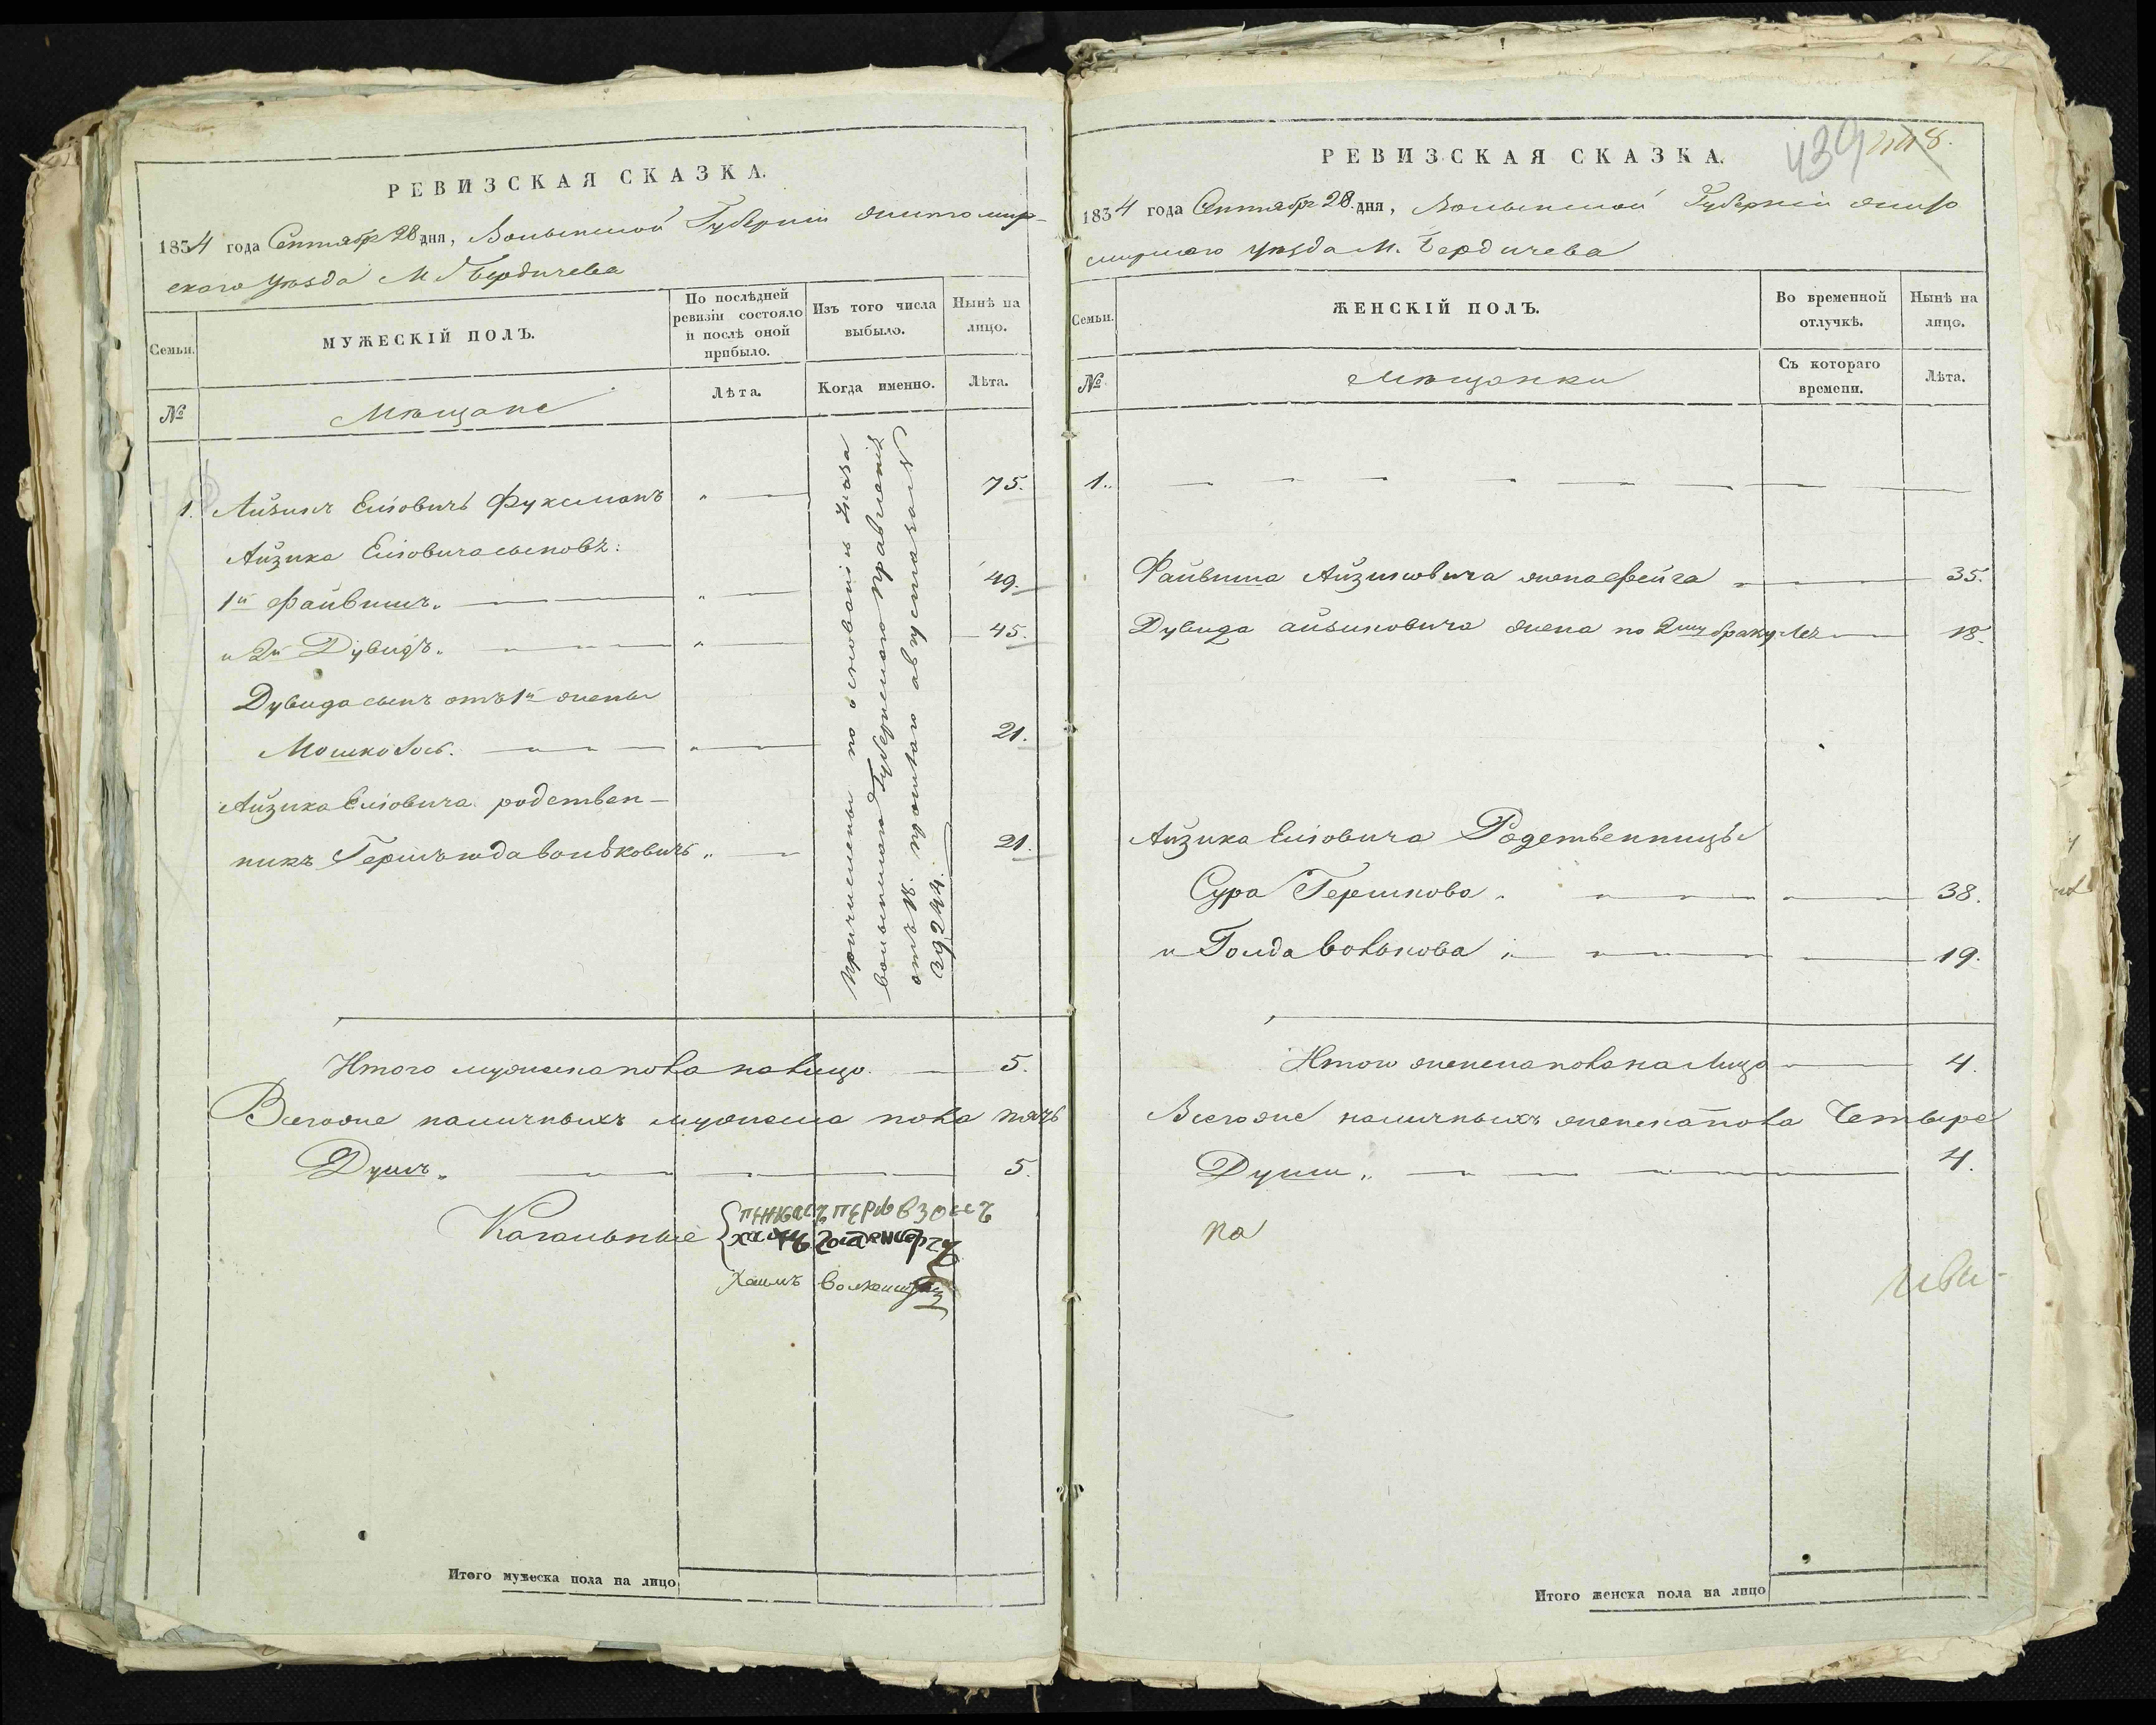 РЕВИЗСКАЯ СКАЗКА.
1834 года Сентября 28 дня, Волынской Губерніи Житомир-
скаго уѣзда М. Бердичева
Семьи.
МУЖЕСКІЙ ПОЛЪ.
По послѣдней ревизіи состояло и послѣ оной прибыло.
Изъ того числа выбыло.
Нынѣ на лицо.
№
Мѣщане
Лѣта.
Когда именно.
Лѣта.
1. Айзикъ Еліовичъ Фуксманъ " 75.
Айзика Еліовича сыновъ:
1й Файвишъ " 49.
и 2й Дувидъ " 45.
Дувида сынъ отъ 1й жены
Мошко " 21.
Айзика Еліовича родствен-
никъ Гершъ Юда Вольковичъ " 21.
Причислены по основанію Указа
Волынскаго Губернскаго Правленія
отъ 18. прошлаго августа за №
29244.
Итого мужеска пола на лицо. 5.
Всего же наличныхъ мужеска пола пять
Душъ " 5.
Кагальные
Хаимъ
Хаимъ
Итого мужеска пола на лицо
439
448.
РЕВИЗСКАЯ СКАЗКА.
1834 года Сентября 28 дня, Волынской Губерніи Жито
мирскаго уѣзда М. Бердичева
Семьи.
ЖЕНСКІЙ ПОЛЪ.
Во временной отлучкѣ.
Нынѣ на лицо.
№
Мѣщанки
Съ котораго времени.
Лѣта.
1.
Файвиша Айзиковича жена Фейга " 35.
Дувида Айзиковича жена по 2му браку Лея 18.
Айзика Еліовича Родственницы
Сура Гершкова 38.
и Голда Волькова 19.
Итого женска пола на лицо 4.
Всего же наличныхъ женска пола Четыре
Души " 4.
на
Итого женска пола на лицо